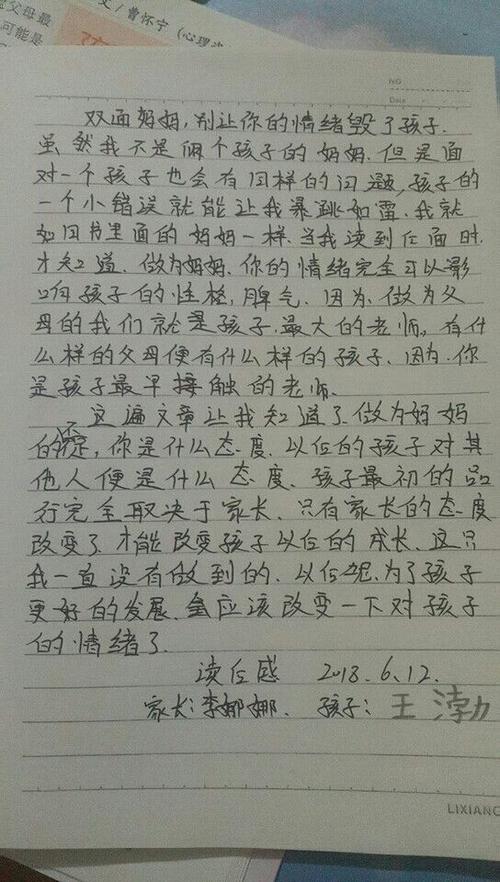 父母最
可能是
文/曹怀宁（心理咨
NO
Date
双面妈妈，别让你的情绪毁了孩子.
虽然我不是俩个孩子的妈妈.但是面
对一个孩子也会有同样的问题,孩子的
一个小错误就能让我暴跳如雷.我就
如同书里面的妈妈一样.当我读到后面时.
才知道.做为妈妈.你的情绪完全可以影
响孩子的性格,脾气.因为.做为父
母的我们就是孩子.最大的老师。有什
么样的父母便有什么样的孩子.因为.你
是孩子最早接触的老师。
这遍文章让我知道了.做为妈妈
的,你是什么态度.以后的孩子对其
他人便是什么态度、孩子最初的品
行完全取决于家长.只有家长的态度
改变了.才能改变孩子以后的成长.这只
我一直没有做到的.以后呢.为了孩子
更好的发展.应该改变一下对孩子
的情绪了.
读后感 2018.6.12.
家长:李娜娜. 孩子:王渤
LIXIANG